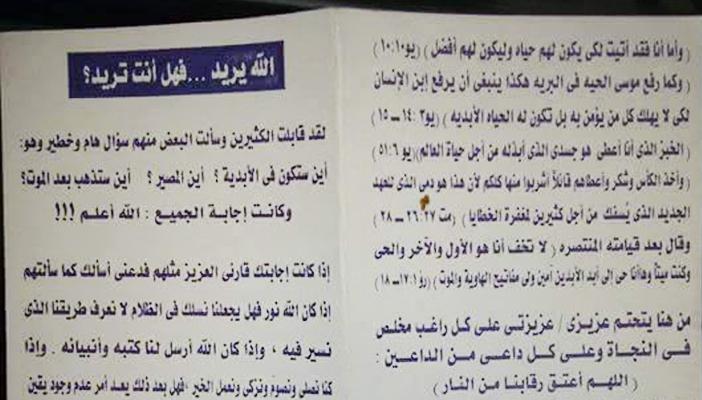 الله يريد ...فهل أنت تريد؟
لقد قابلت الكثيرين وسألت البعض منهم سؤال هام وخطير وهو:
أين ستكون فى الأبدية ؟ أين المصير ؟ أين ستذهب بعد الموت؟
وكانت إجابة الجميع : الله أعلم !!!
إذا كانت إجابتك قارئى العزيز مثلهم فدعنى أسألك كما سألتهم
إذا كان الله نور فهل يجعلنا نسلك فى الظلام لا نعرف طريقنا الذى
نسير فيه ، وإذا كان الله أرسل لنا كتبه وأنبيائه . وإذا
كنا نصلى ونصوم ونزكى ونعمل الخير ،فهل بعد ذلك يعد أمر عدم وجود يقين
( وأما أنا فقد أتيت لكى يكون لهم حياه وليكون لهم أفضل ) (يو١٠:١٠)
( وكما رفع موسى الحيه فى البريه هكذا ينبغى أن يرفع إبن الإنسان
لكى لا يهلك كل من يؤمن به بل تكون له الحياه الأبديه ) (يو٣: ١٤ – ١٥)
( الخبز الذى أنا أعطى هو جسدى الذى أبذله من أجل حياة العالم)(يو ٥١:٦)
( وأخذ الكأس وشكر وأعطاهم قائلاً أشربوا منها كلكم لأن هذا هو دمى الذى للعهد
الجديد الذى يُسفك من أجل كثيرين لمغفرة الخطايا ) (مت ٢٦:٢٧ – ٢٨)
وقال بعد قيامته المنتصره ( لا تخف أنا هو الأول والآخر والحى
وكنت ميتاً وهاأنا حى إلى أبد الأبدين أمين ولى مفاتيح الهاوية والموت ) (رؤ١: ١٧–١٨)
من هنا يتحتم عزيزى / عزيزتى على كل راغب مخلص
فى النجاة وعلى كل داعى من الداعين :
( اللهم أعتق رقابنا من النار )